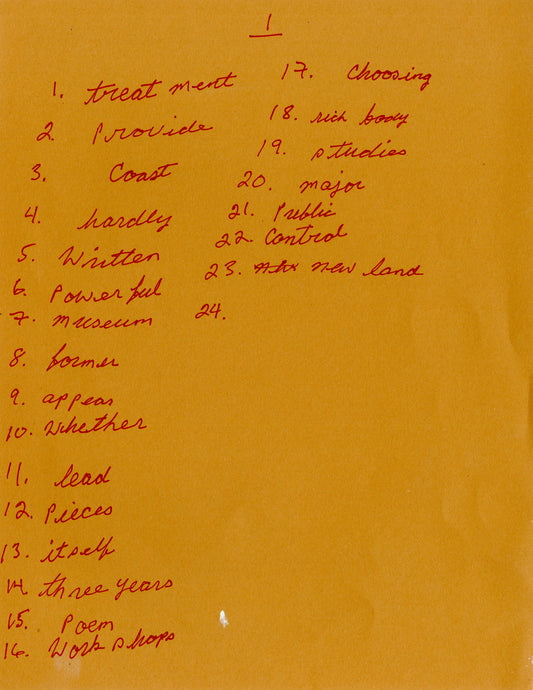 1
1. treatment
2. Provide
3. Coast
4. hardly
5. Written
6. Powerful
7. museum
8. former
9. appears
10. Whether
11. lead
12. Pieces
13. itself
14. three years
15. Poem
16. Work shops
17. Choosing
18. rich body
19. studies
20. major
21. Public
22. Control
23. new land
24.